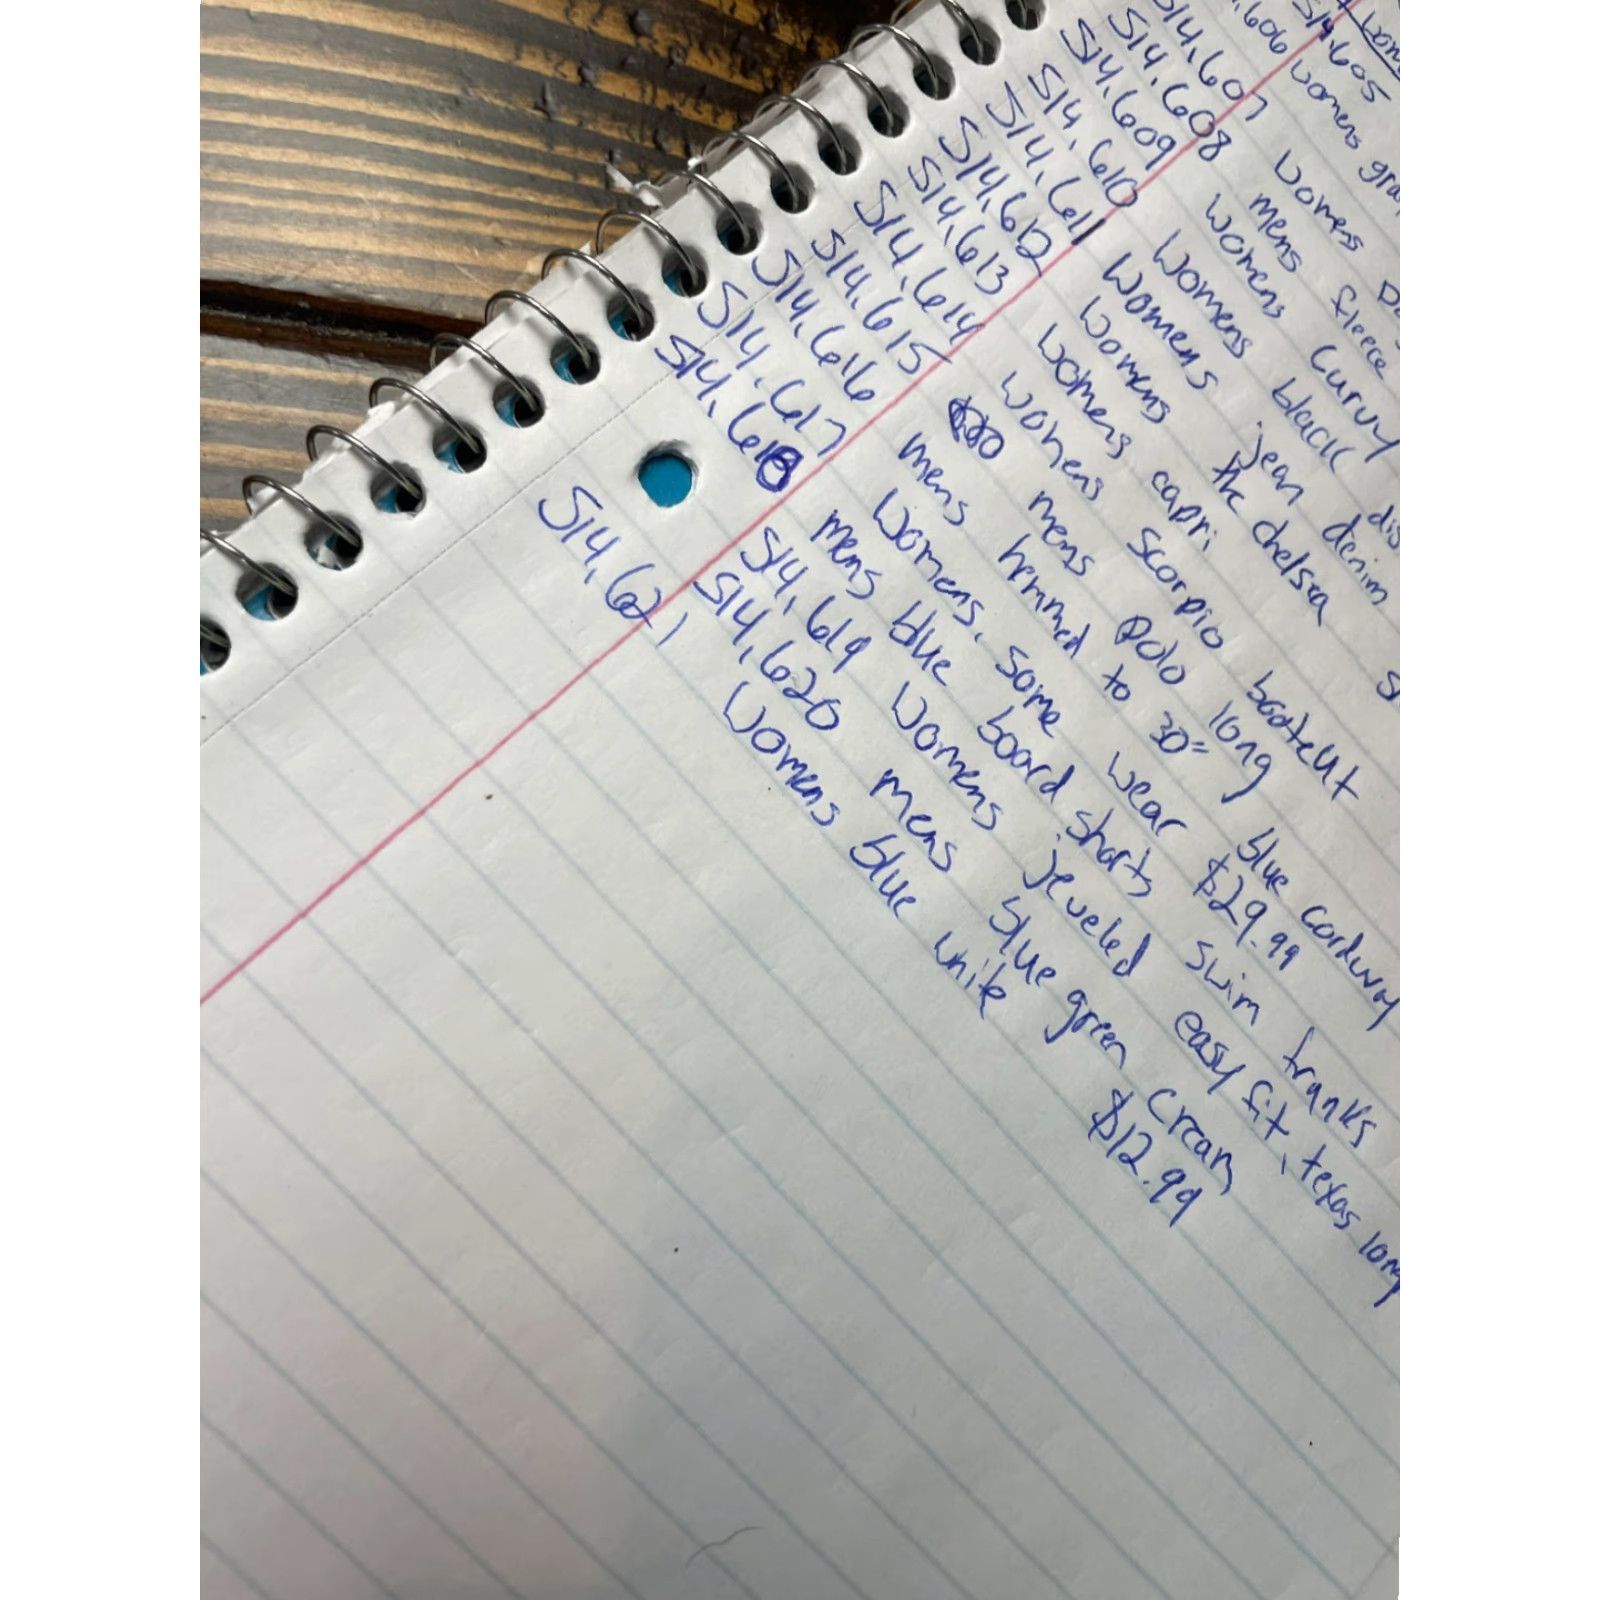 wom
514.605
.606 womens gra
514.607 womens
514.608 mens fleece
514.609 womens curvy
514.610 womens black dis
514.611 womens jean denim
514.612 womens the chelsea s
514.613 womens capri
514.614 womens scorpio bootcut
514.615 mens polo long
514.616 mens hemmed to 30" blue corduroy
514.617 womens, some wear $29.99
514.618 mens blue board shorts swim trunks
514.619 womens jeweled easy fit, texas long
514.620 mens blue green cream
514.621 womens blue white $12.99